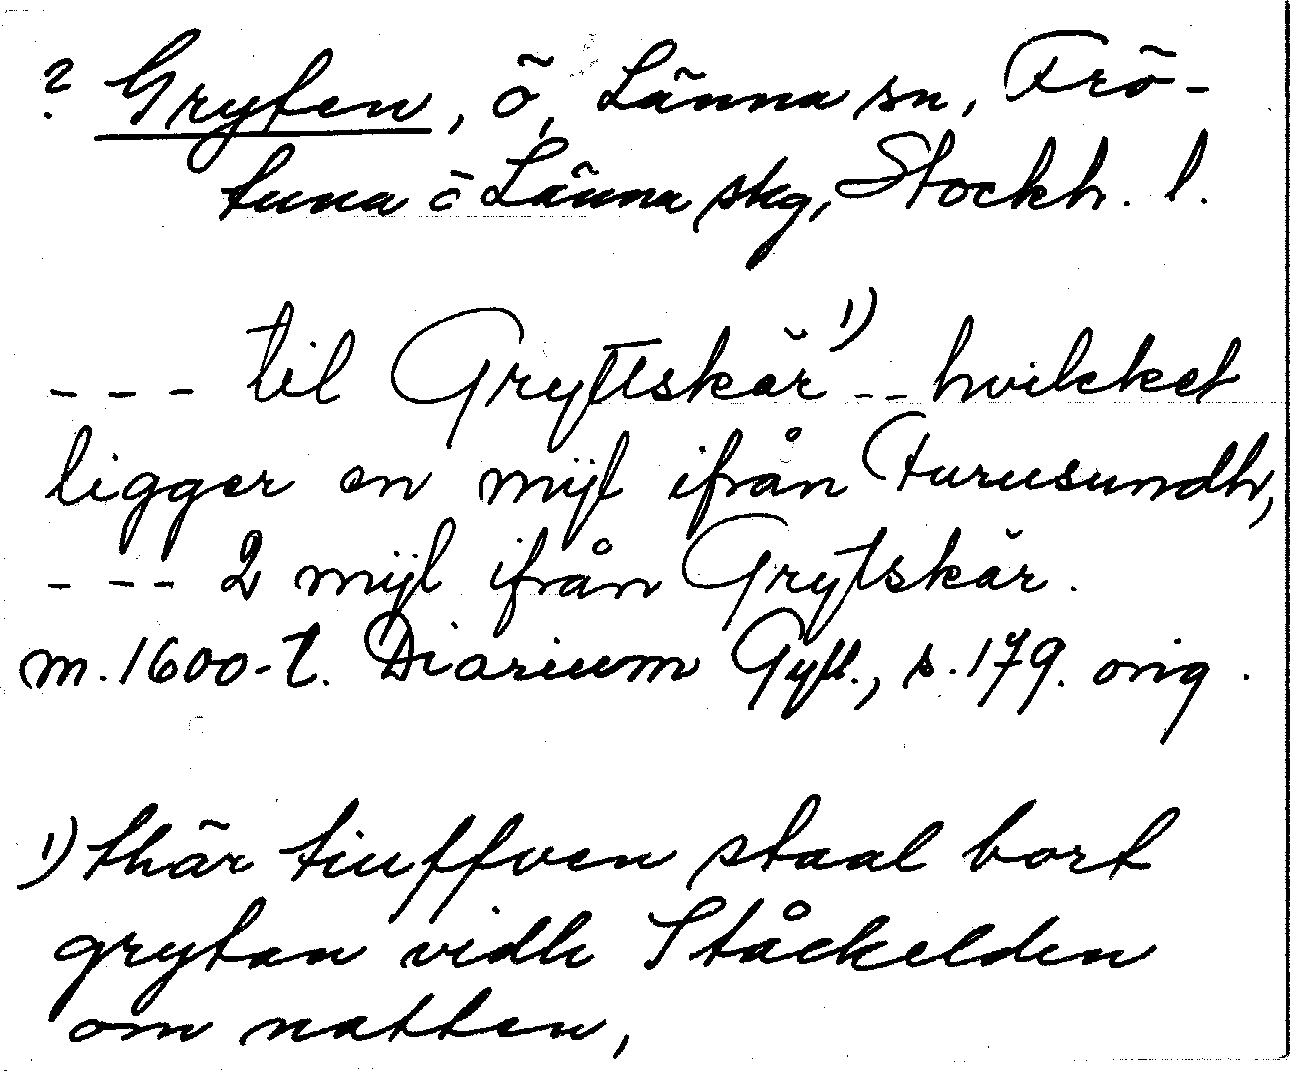 ? Gryten, ö, Länna sn, Frö-
tuna o Länna skg, Stockh. l.
--- til Grytskär 1) -- hvilcket
ligger en mijl ifrån Furusundh,
--- 2 mijl ifrån Grytskär.
m. 1600-t. Diarium Gyll., s. 179. orig.
1) thär tiuffven staal bort
grytan vidh Ståckelden
om natten,